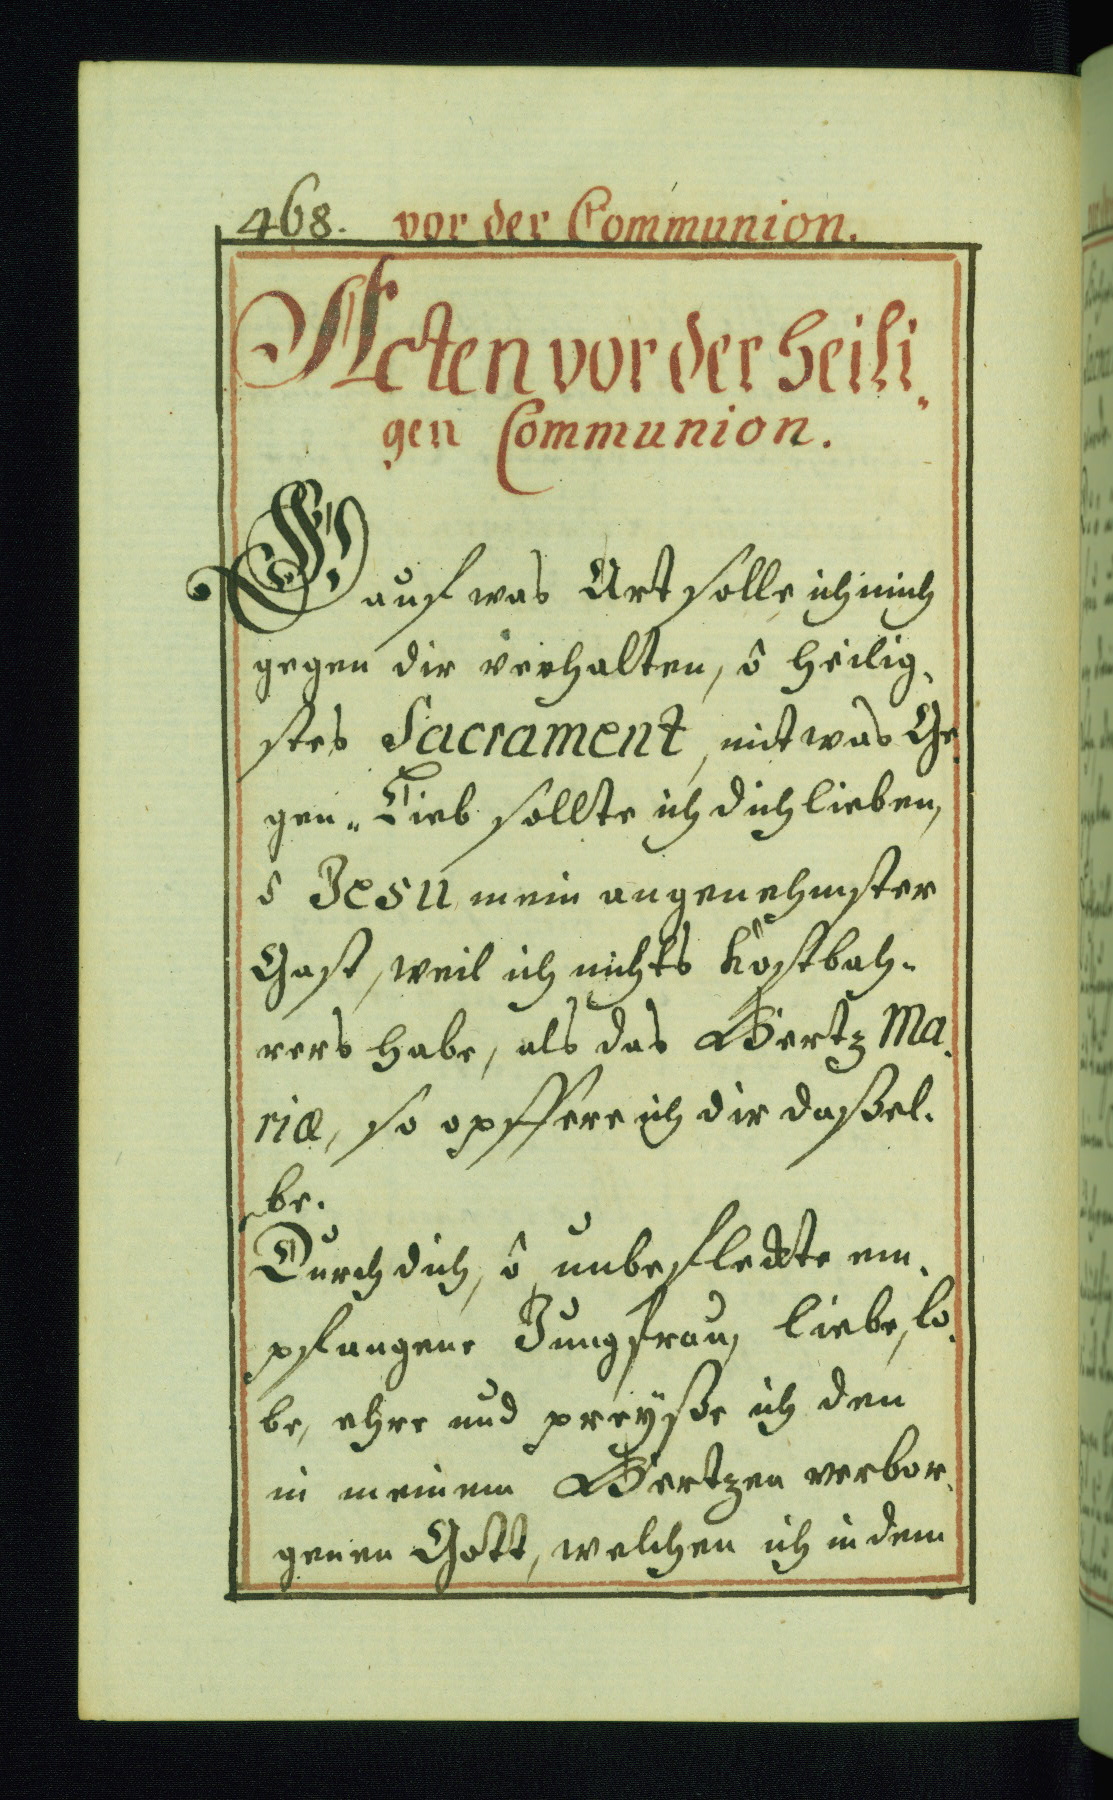 468. vor der Communion.
Acten vor der heili„
gen Communion.
auf was Art solle ich mich
gegen dir verhalten, ô heilig„
stes Sacrament, mit was Ge„
gen„Lieb sollte ich dich lieben,
ô Jesu mein angenehmster
Gast, weil ich nichts kostbah„
rers habe, als das Hertz Ma„
riæ, so opffere ich dir daßel„
be.
Durch dich, ô unbefleckte em„
pfangene Jungfrau, liebe, lo„
be, ehre und preÿße ich den
in meinem Hertzen verbor„
genen Gott, welchen ich in dem